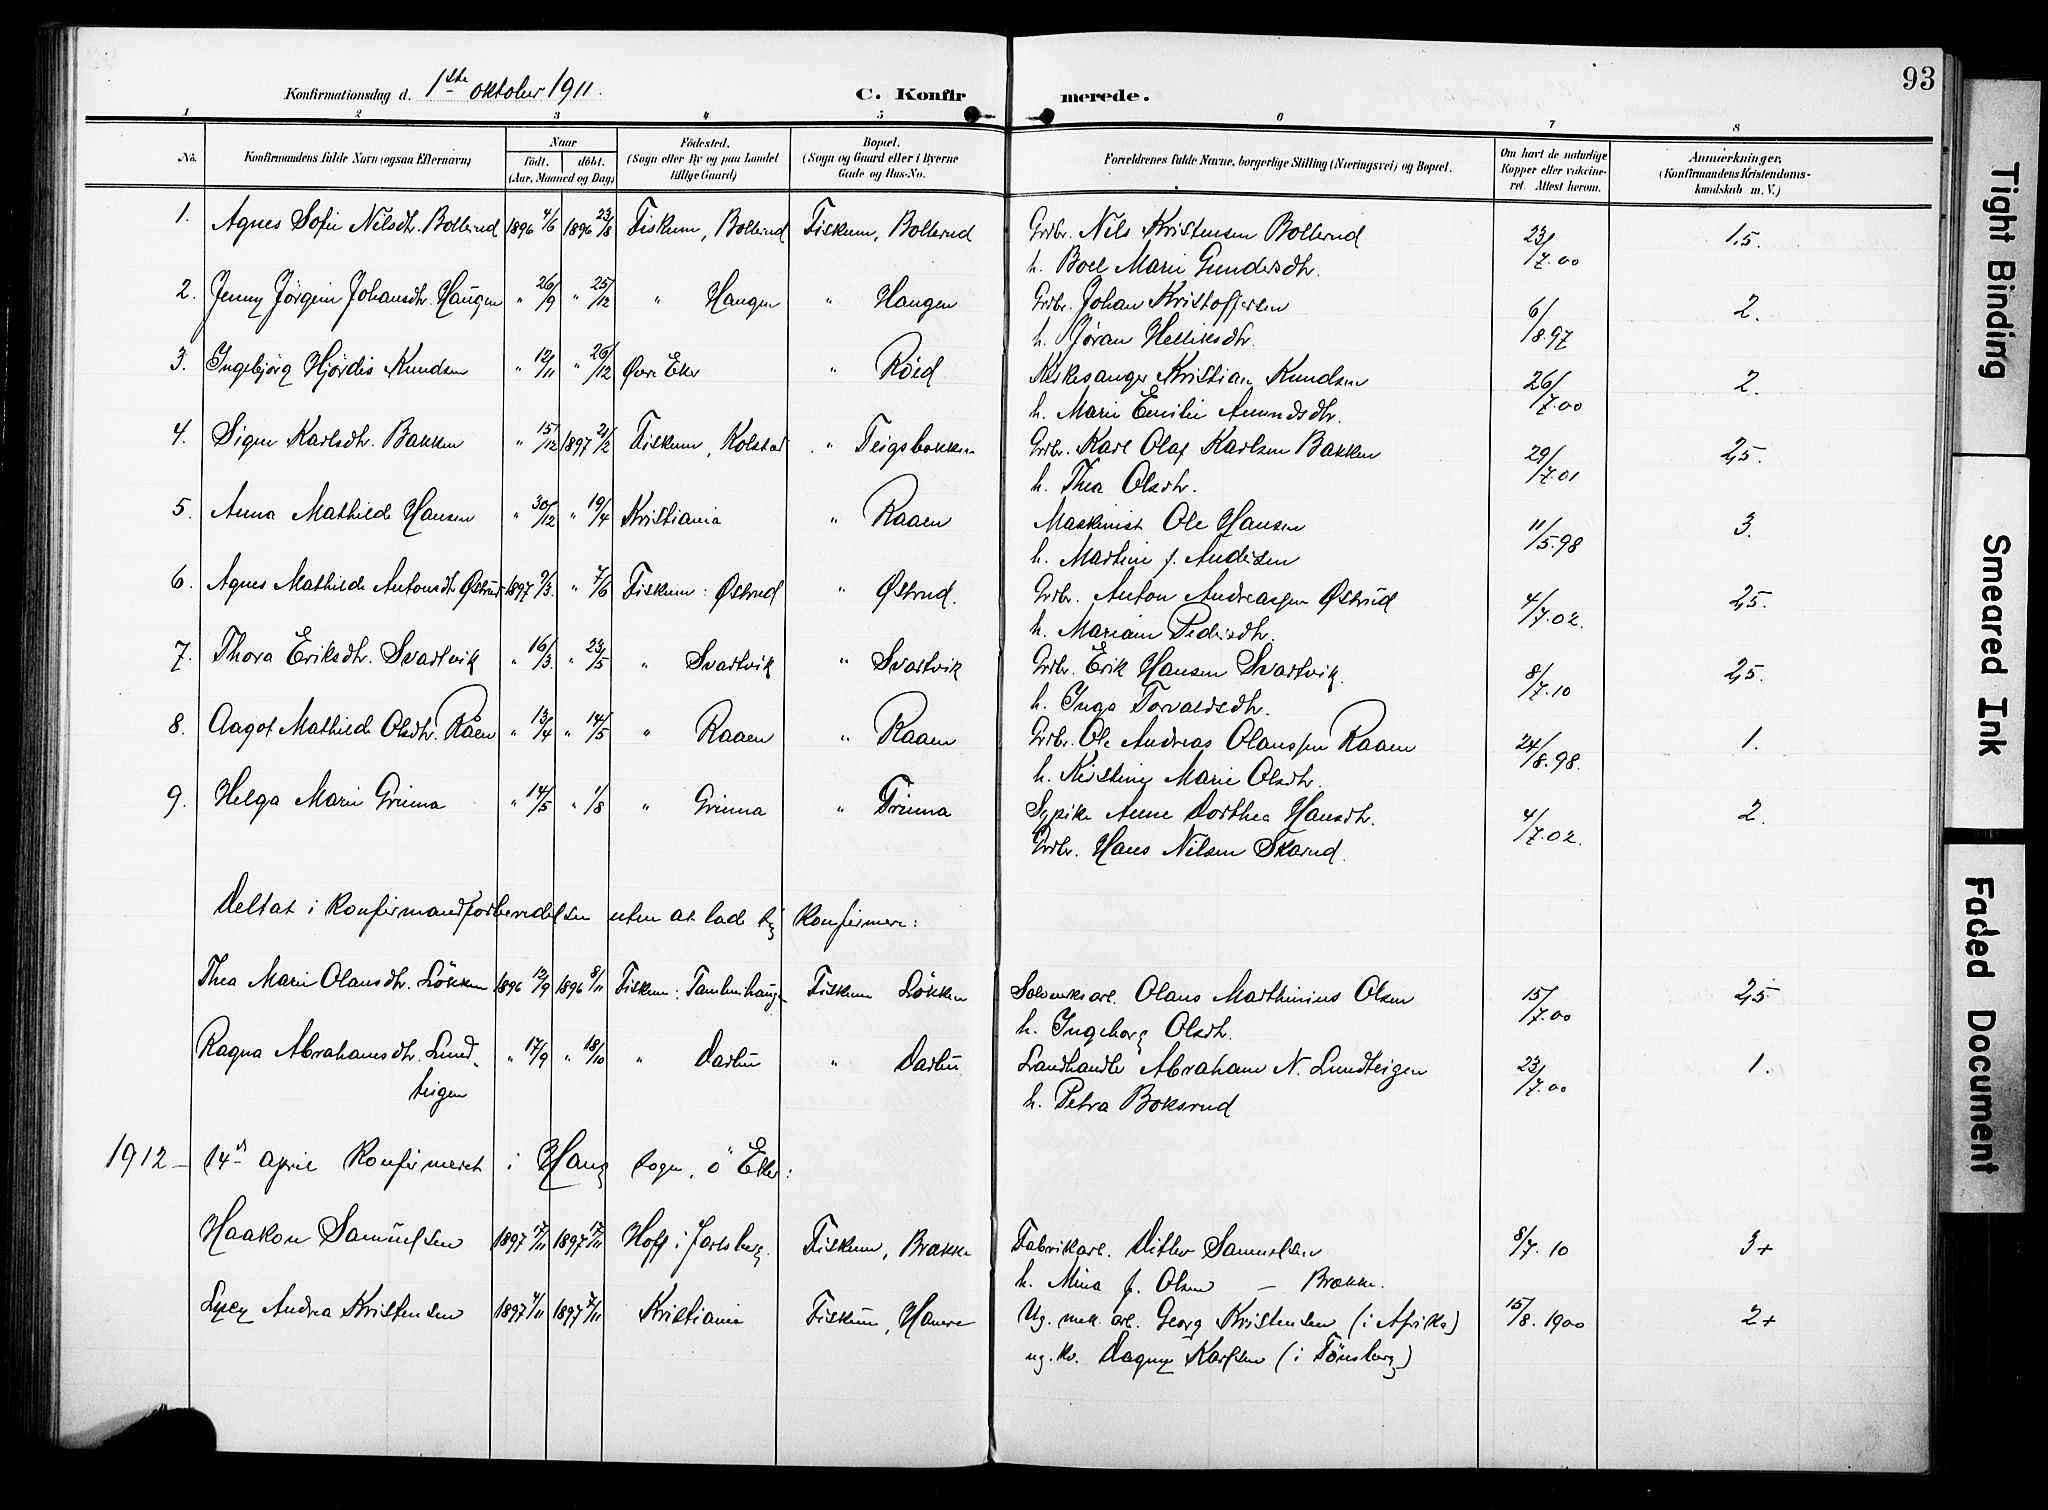 93
Konfirmationsdag d. 1ste oktober 1911.
C. Konfirmerede.
1 2 3 4 5 6 7 8
No. Konfirmandens fulde Navn (ogsaa Efternavn) Naar født. døbt. (Aar, Maaned og Dag) Fødested. (Sogn eller By og paa Landet tillige Gaard) Bopæl. (Sogn og Gaard eller i Byerne Gade og Hus-No. Forældrenes fulde Navne, borgerlige Stilling (Næringsvei) og Bopæl. Om havt de naturlige Kopper eller vaccineret. Attest herom. Anmærkninger. (Konfirmandens Kristendomskundskab m. V.)
1. Agnes Sofie Nilsdtr. Bollerud 1896 4/6 1896 23/8 Fiskum, Bollerud Fiskum, Bollerud Grdbr. Nils Kristensen Bollerud 23/7.00 1,5.
h. Boel Marie Gundersdtr.
2. Jenny Jörgine Johansdtr. Haugen " 26/9 " 25/12 " Haugen " Haugen Grdbr. Johan Kristoffersen 6/8.97 2.
h. Jøran Helliksdtr.
3. Ingebjörg Hjördis Knudsen " 12/11 " 26/12 Øvre Eker " Röed Kirkesanger Kristian Knudsen 26/7.00 2.
h. Marie Emilie Amundsdtr.
4. Signe Karlsdtr. Bakken " 15/12 1897 21/2 Fiskum, Kolstad " Teigsbakken Grdbr. Karl Olaf Karlsen Bakken 29/7.01 2,5.
h. Thea Olsdtr.
5. Anna Mathilde Hansen " 30/12 " 19/4 Kristiania " Raaen Maskinist Ole Hansen 11/5.98 3.
h. Martine f. Andersen
6. Agnes Mathilde Antonsdtr Østrud 1897 9/3. " 7/6 Fiskum: Østrud " Østrud. Grdbr. Anton Andreassen Østrud 4/7.02. 2,5.
h. Mariane Pedersdtr.
7. Thora Eriksdtr. Svartvik " 16/3. " 23/5 " Svartvik " Svartvik Grdbr. Erik Hansen Svartvik. 8/7.10 2,5.
h. Inga Torvaldsdtr.
8. Aagot Mathilde Olsdtr. Råen " 13/4 " 14/5 " Raaen " Raaen Grdbr. Ole Andreas Olanssen Raaen 24/8.98. 1.
h. Kirstine Marie Olsdtr.
9. Helga Marie Grinna " 14/5 " 1/8 " Grinna " Grinna Sypike Anne Dorthea Hansdtr. 4/7.02. 2.
Grdbr. Hans Nilsen Skarud.
Deltat i konfirmandforberedelsen uten at lade sig konfirmere:
Thea Marie Olansdtr. Lökken 1896 12/9 1896 8/11 Fiskum: Tambenhaugen Fiskum Lökken Sølverksarb. Olans Marthinius Olsen 15/7.00 2,5
h. Ingeborg Olsdtr.
Ragna Abrahamsdtr. Lund- " 17/9 " 18/10 " Darbu " Darbu Landhandler Abraham N. Lundteigen 23/7.00 1.
teigen h. Petra Boksrud
1912 – 14de april konfirmeret i Haug sogn, Ö Eker:
Haakon Samuelsen 1897 17/11 1897 17/11 Hoff i Jarlsberg. Fiskum, Brække Fabrikarb. Ditlev Samuelsen 8/7.10 3+
h. Mina f. Olsen – Brække.
Lucy Andrea Kristensen 1897 4/11 1897 7/11 Kristiania Fiskum, Havere Ug. mek. arb. Georg Kristensen (i Afrika) 15/8.1900 2+
ug. kv. Dagny Karlsen (i Tönsberg)
Tight Binding
Smeared Ink
Faded Document